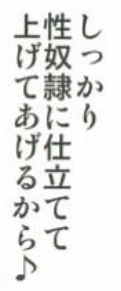 しっかり
性奴隷に仕立てて
上げてあげるから♪